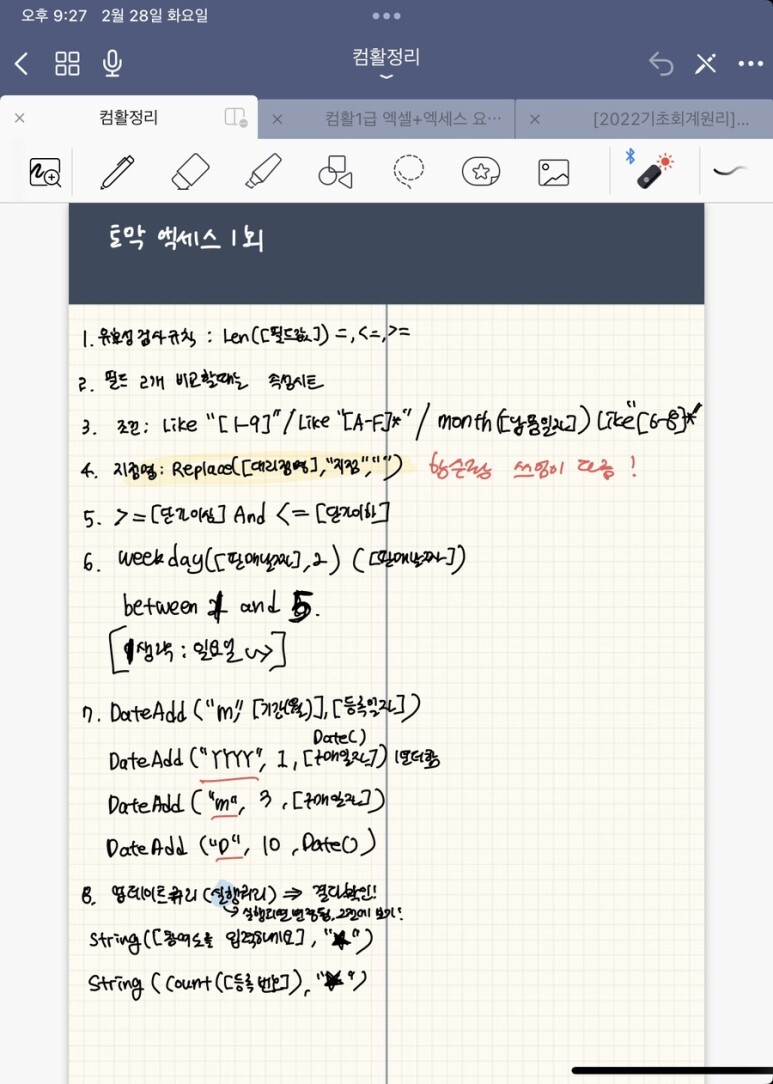 오후 9:27 2월 28일 화요일
컴활정리
컴활정리
컴활1급 엑셀+엑세스 요…
[2022기초회계원리]...
토막 엑세스 1회
1. 유효성 검사 규칙 : Len([필드값]) =, <=, >=
2. 필드 2개 비교할때는 속성시트
3. 조건: Like "[1-9]" / Like "[A-F]*" / month([납품일자]) Like "[6-8]*"
4. 지점명: Replace([대리점명],"지점","") 함수랑 쓰임이 다름 !
5. >=[단가이상] And <= [단가이하]
6. weekday([판매날짜],2) ([판매날짜])
between 1 and 5.
[1생략 : 일요일 ~>]
7. DateAdd ("m", [기간(월)], [등록일자])
Date()
DateAdd ("YYYY", 1, [구매일자]) 1년더함
DateAdd ("m", 3, [구매일자])
DateAdd ("D", 10, Date())
8. 업데이트쿼리 (실행쿼리) ⇒ 결과확인!
→ 실행되면 변경됨, 그전에 보기!
String([참여도를 입력하세요], "★")
String (Count([등록번호]), "★")